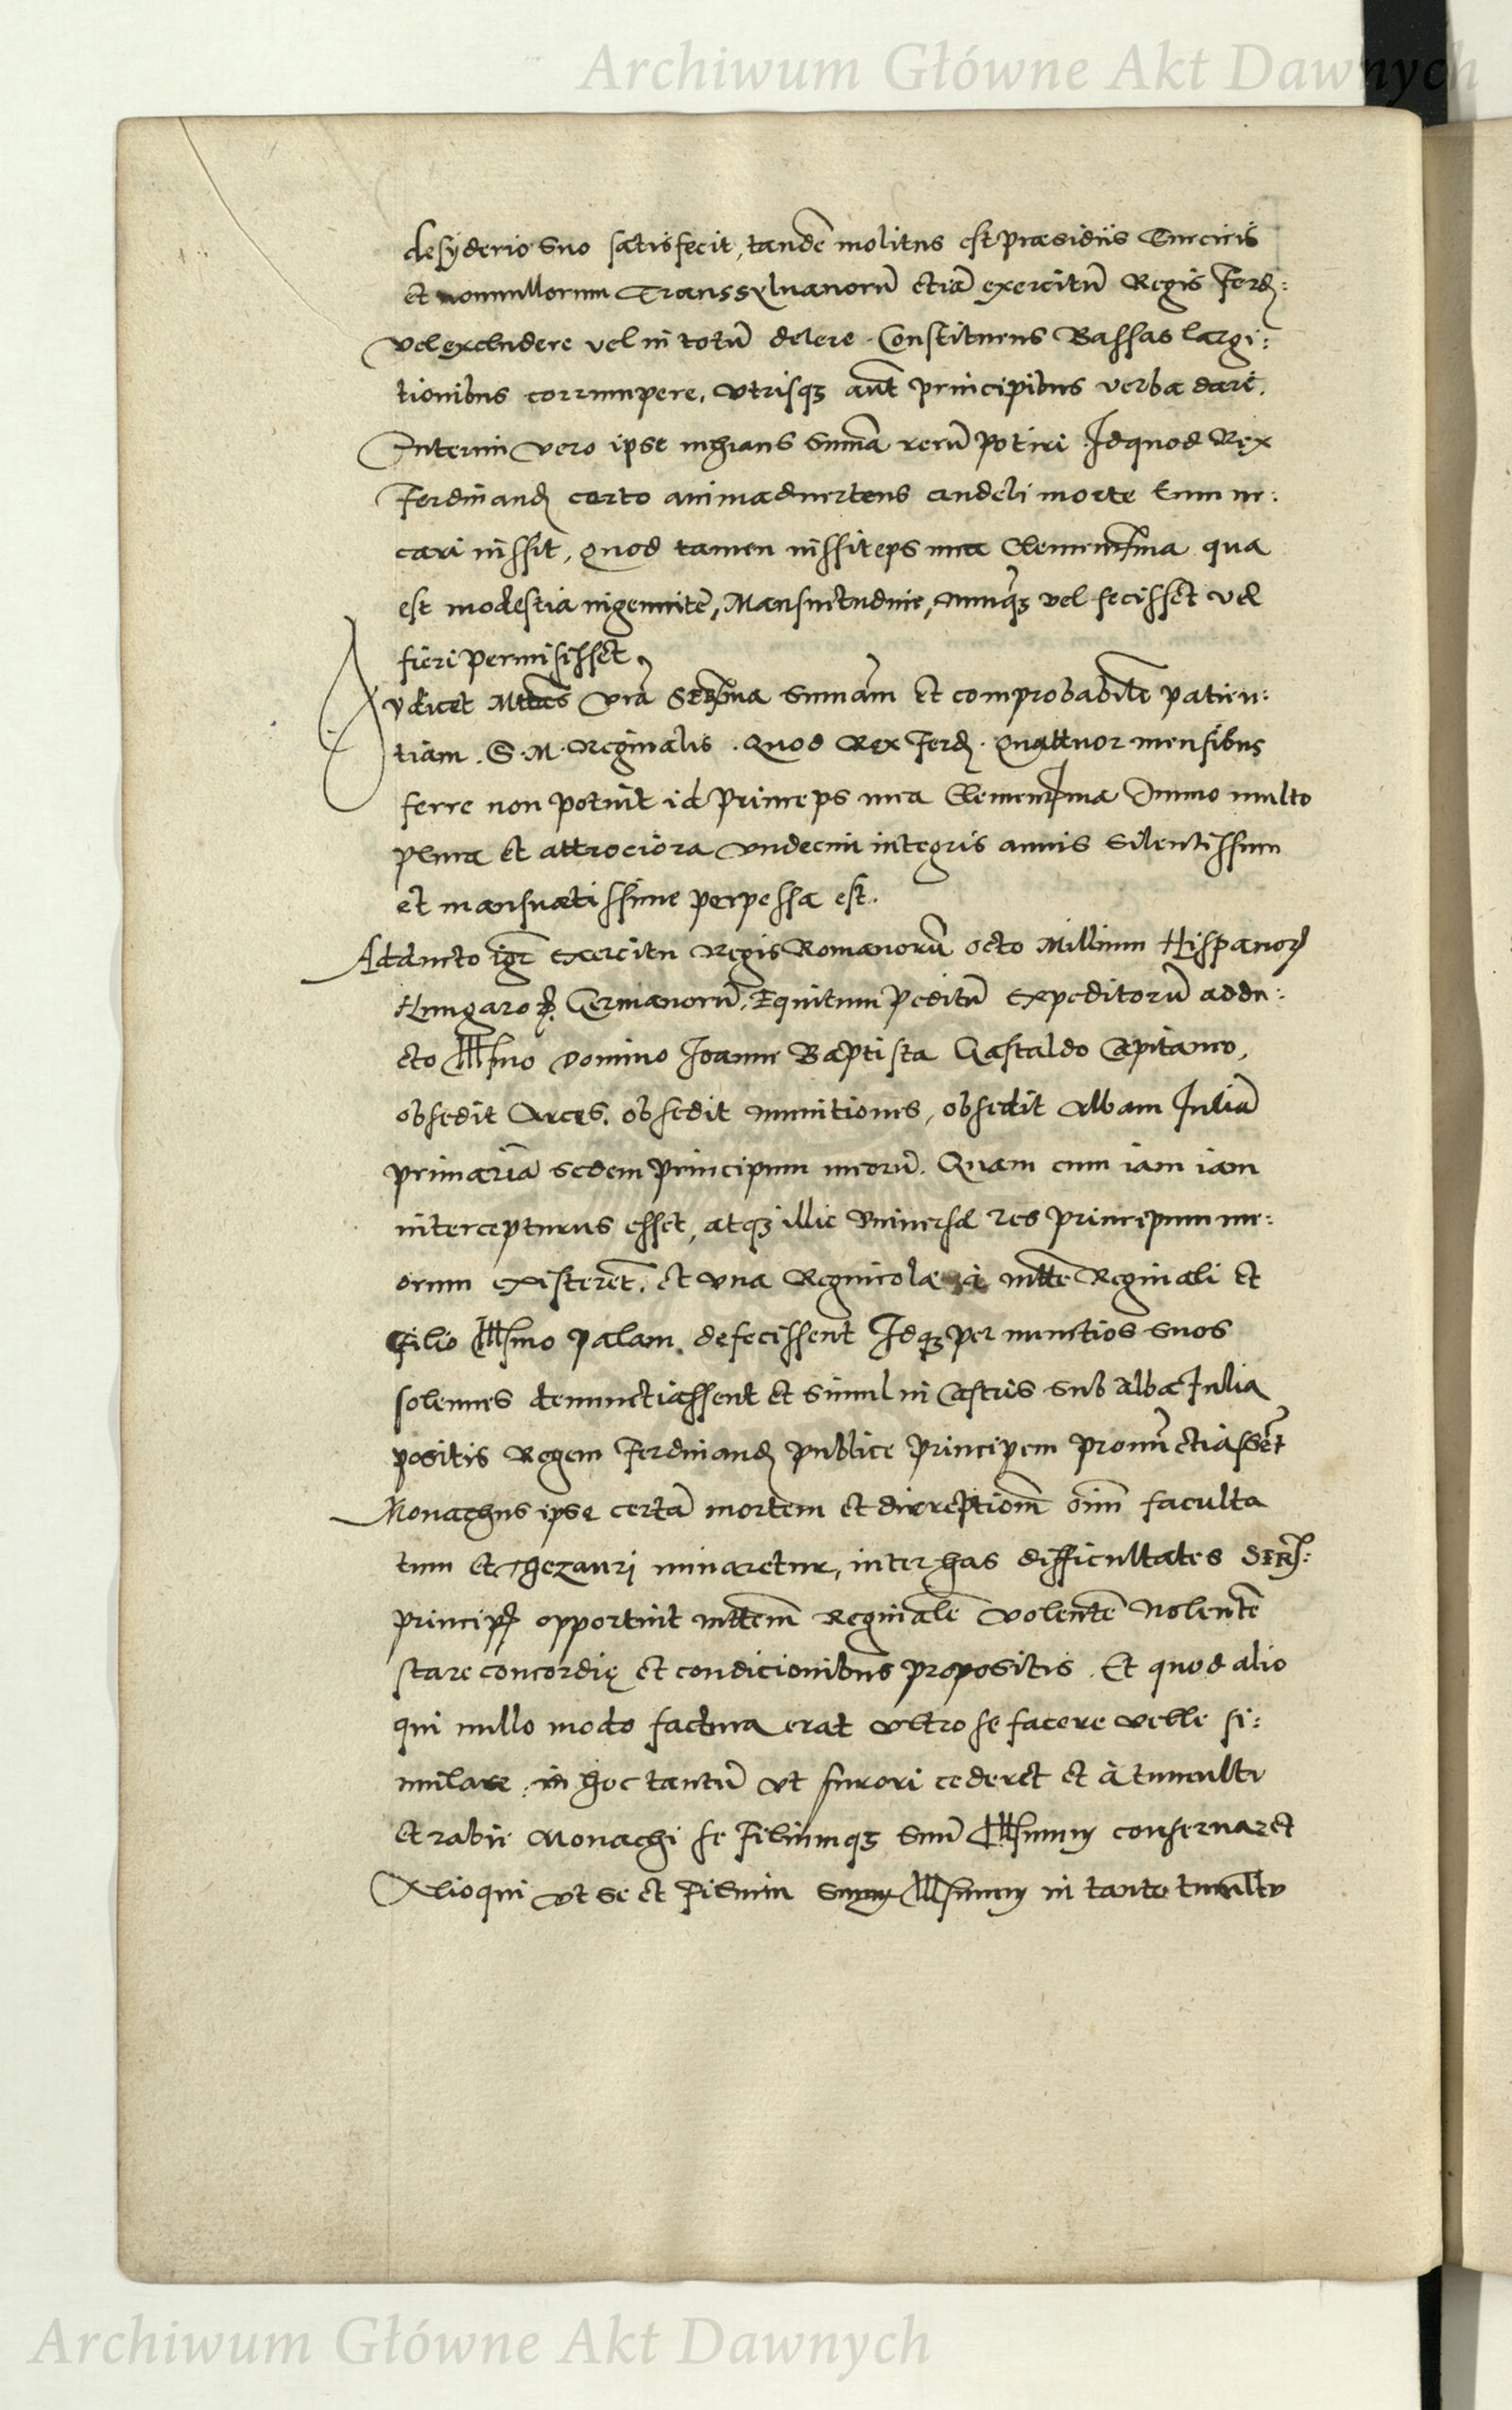 Archiwum Główne Akt Dawnych
desyderio suo satisfecit, tandē molitus est præsidiis Turcicis
et nonnullorum Transsylvanorū etiā exercitū Regis Ferd:
vel excludere vel in totū delere. Constituens Bassas largi:
tionibus corrumpere, utrisq3 aūt principibus verba dare.
Interim vero ipse inhians summā rerū potiri Idquod Rex
Ferdinand certo animadvertens crudeli morte eum ne:
cari iussit, quod tamen iussit eps mea Clemen&ma qua
est modestia ingenuitē, Mansuetudine, nunq3 vel fecisset vel
fieri permisisset
Audiet Mttas Vrā Serma summām et comprobabilē patien:
tiam. S. M. Reginalis. Quod Rex Ferd. quattuor mensibus
ferre non potuit id Princeps mea Clemenma Immo multo
plura et attrociora undecim integris annis silentissim
et mansuetissime perpessa est.
Adducto igr exercitu Regis Romanorū octo Millium Hispanor
Hungaror, Germanorū, Equitum peditū expeditorū addu:
cto Illsmo domino Joanne Baptista Gastaldo Capitaneo,
obsedit Arces, obsedit munitiones, obsedit Albam Juliā
primariā sedem principum meorū. Quam cum iam iam
intercepturus esset, atq3 illic universæ res principum me:
orum existerēt, et una Regnicolæ à mtte Reginali et
filio Illsmo palam defecissent Idq3 per nunctios suos
solennes denunctiassent et simul in Castris sub Alba Julia
positis Regem Ferdinand publice principem pronūctiassēt
Monachus ipse certā mortem et direptionē oīm faculta
tum et Thezauri minaretur, inter has difficultates Ser:
princip opportuit mttem Reginalē volentē Nolentē
stare concordię et condicionibus propositis. Et quod alio
qui nullo modo factura erat ultro se facere velle si:
mulare: in hoc tantū ut furori cederet et à tumultu
et rabie Monachi se filiumq3 suū Illsmum conservaret
Alioqui ut se et filium suum Illsmum in tanto tumultu
Archiwum Główne Akt Dawnych